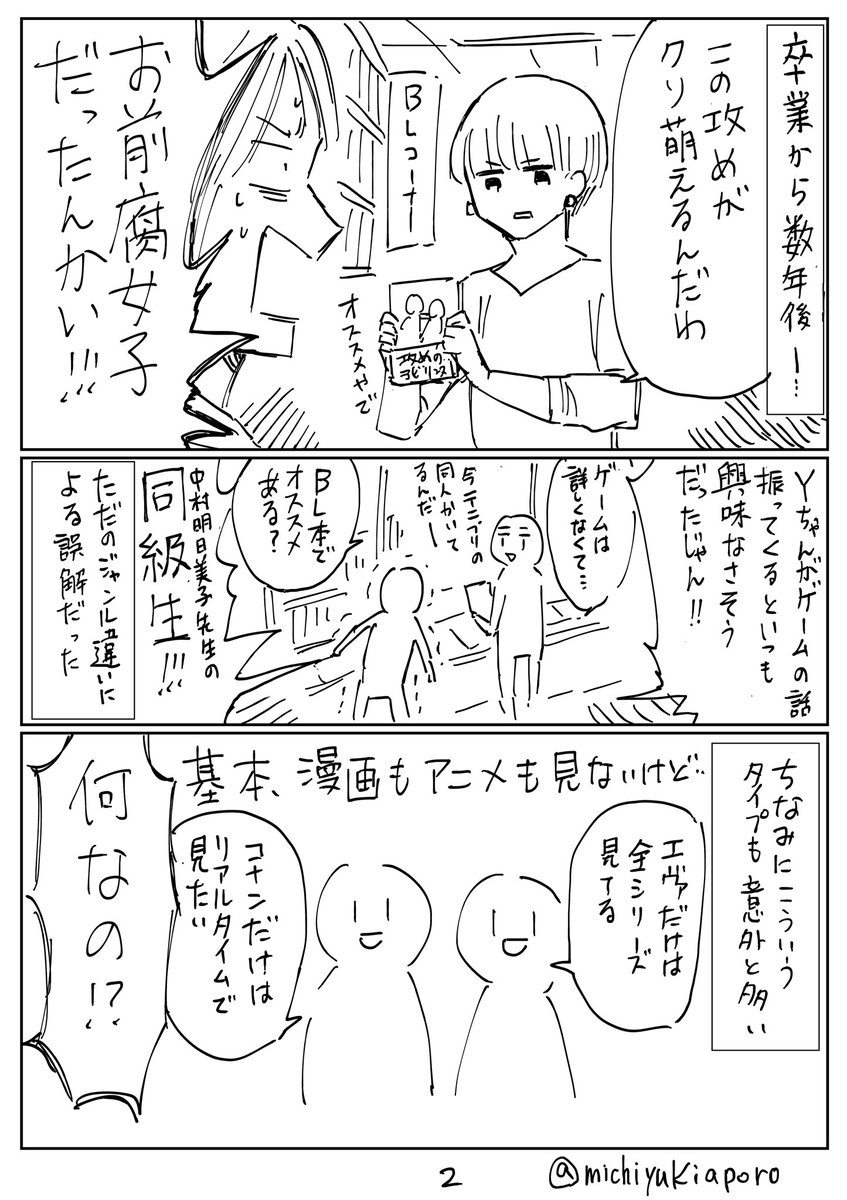 卒業から数年後ー…
この攻めが
クソ萌えるんだわ
BLコーナー
攻めの
オススメやで
お前腐女子
だったんかい!!!
Yちゃんがゲームの話
振ってくるといつも
興味なさそう
だったじゃん!!
ゲームは
詳しくなくて…
今テニプリの
同人かいて
るんだー
BL本で
オススメ
ある?
中村明日美子先生の
同級生!!!
ただのジャンル違いに
よる誤解だった
ちなみにこういう
タイプも意外と多い
基本、漫画もアニメも見ないけど…
エヴァだけは
全シリーズ
見てる
コナンだけは
リアルタイムで
見たい
何なの!?
2
@michiyukiaporo